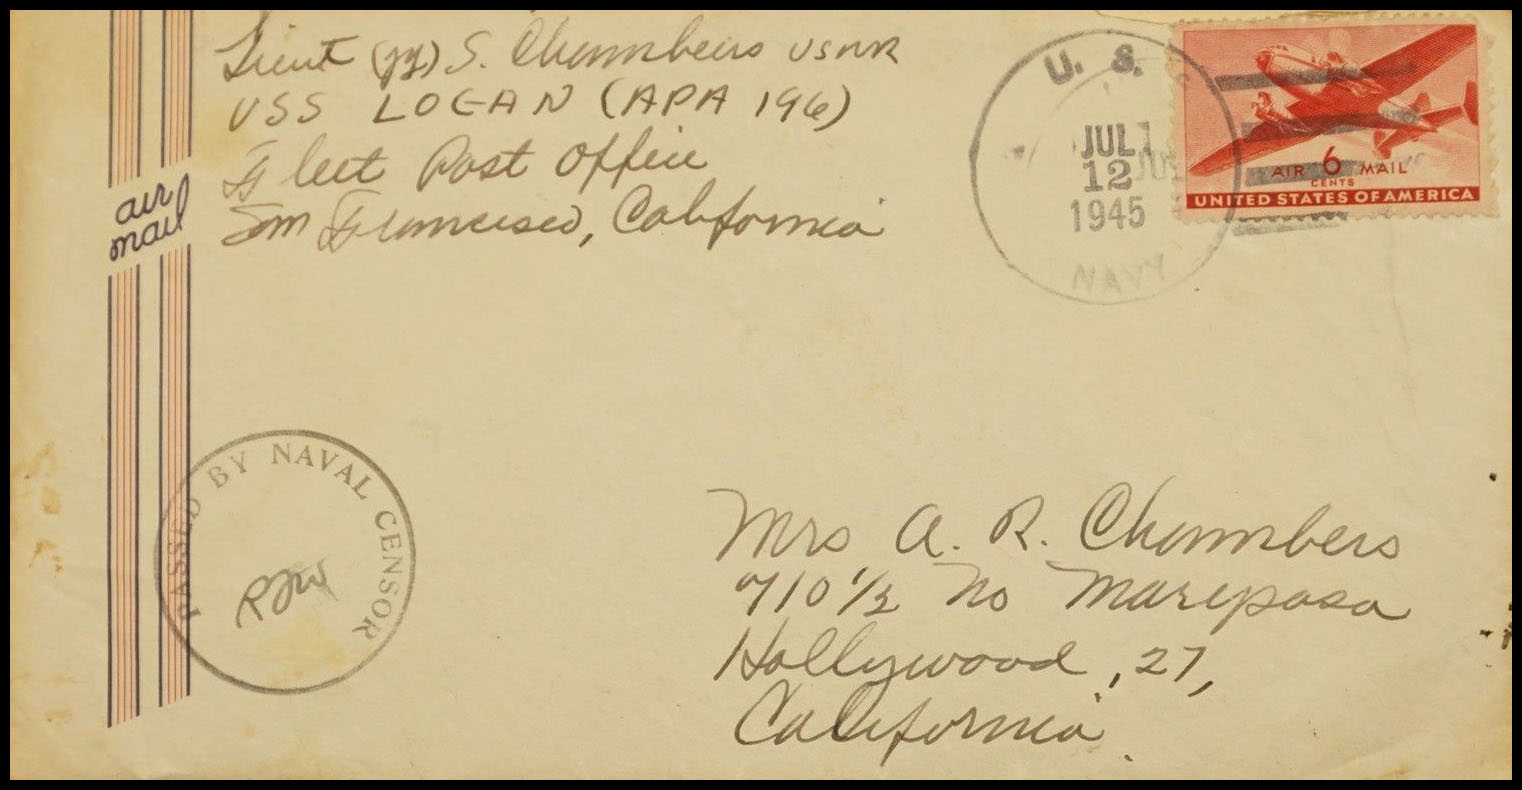 Lieut (jg) S. Chambers USNR
USS LOGAN (APA 196)
Fleet Post Office
San Francisco, California
air
mail
U. S.
JUL
12
1945
NAVY
AIR 6 MAIL
CENTS
UNITED STATES OF AMERICA
PASSED BY NAVAL CENSOR
Mrs A. R. Chambers
710 1/2 No Mariposa
Hollywood, 27,
California